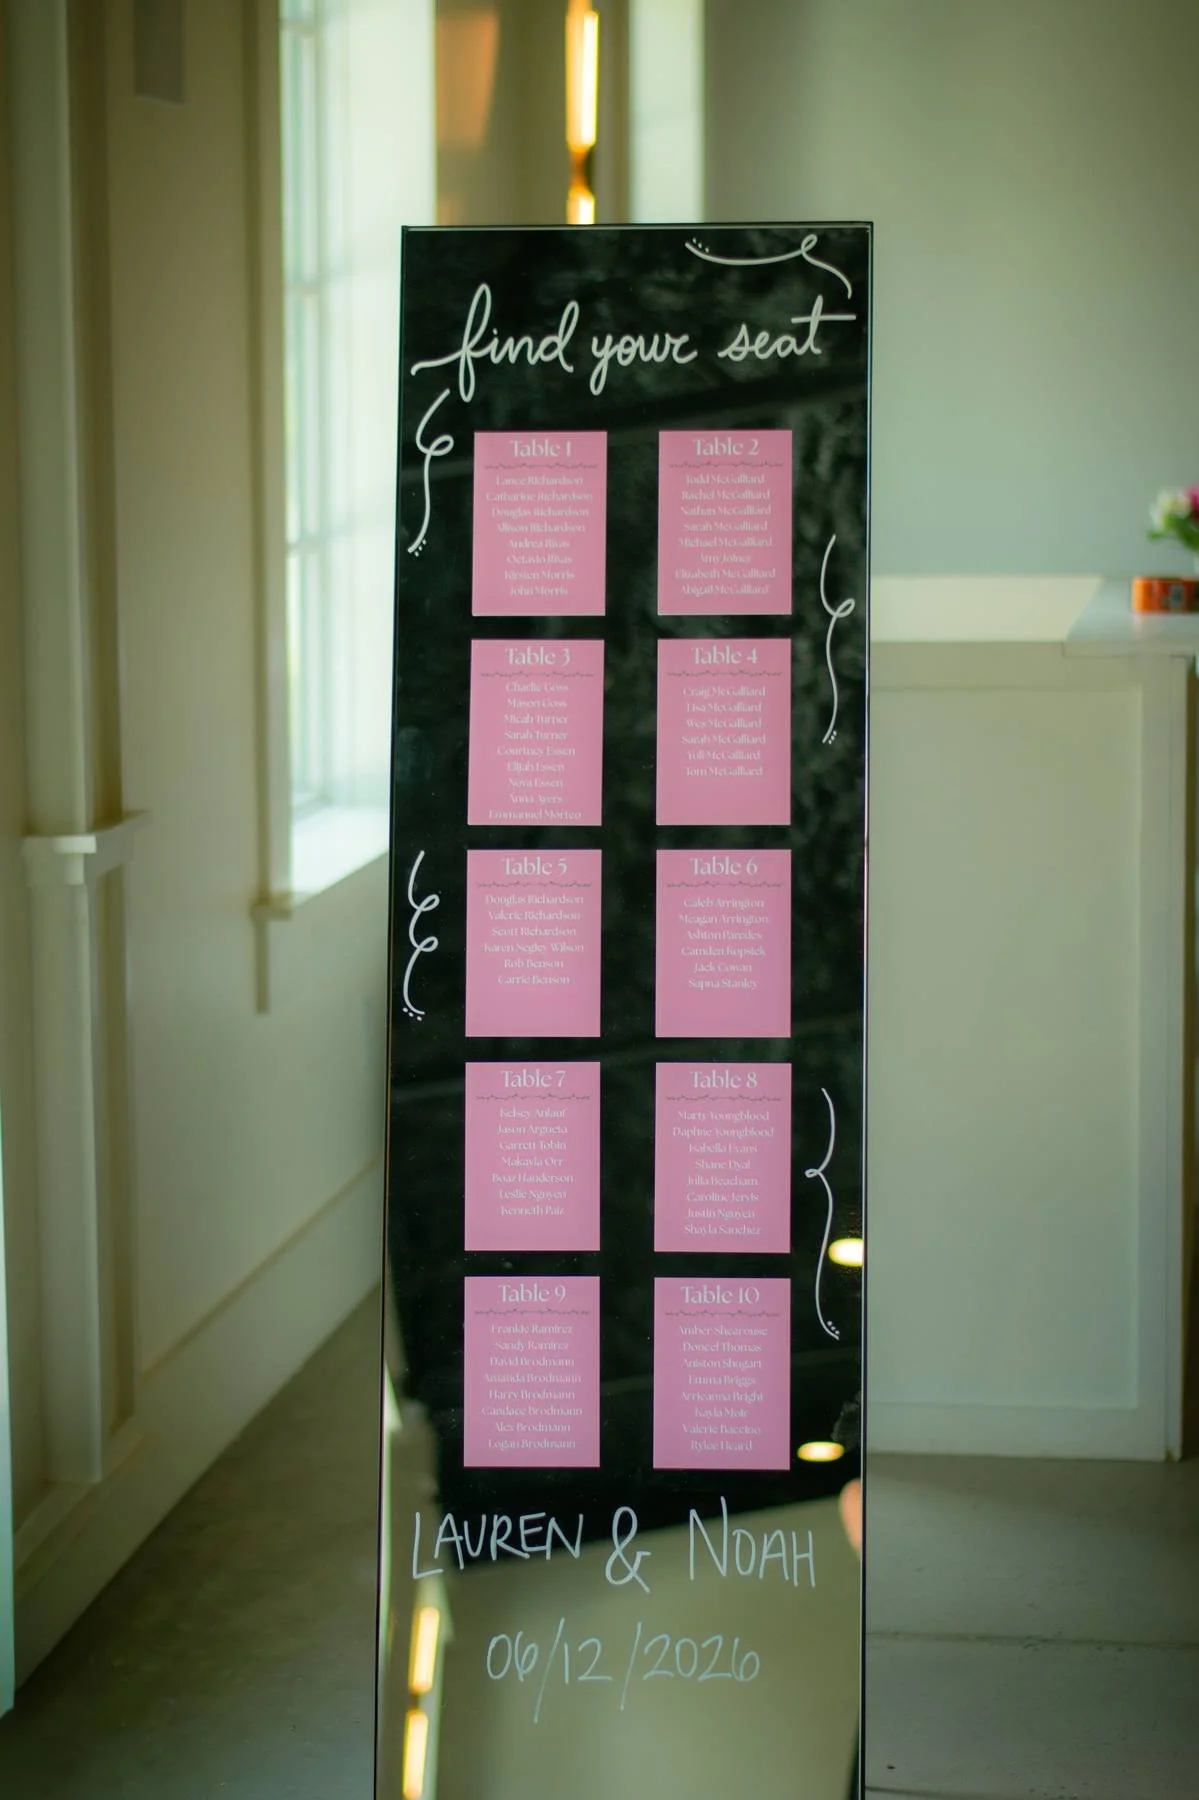 find your seat
Table 1
Lance Richardson
Catharine Richardson
Douglas Richardson
Allison Richardson
Andrea Rivas
Octavio Rivas
Kirsten Morris
John Morris
Table 2
Todd McGalliard
Rachel McGalliard
Nathan McGalliard
Sarah McGalliard
Michael McGalliard
Amy Joiner
Elizabeth McGalliard
Abigail McGalliard
Table 3
Charlie Goss
Mason Goss
Micah Turner
Sarah Turner
Courtney Essen
Elijah Essen
Nova Essen
Anna Ayers
Emmanuel Morteo
Table 4
Craig McGalliard
Lisa McGalliard
Wes McGalliard
Sarah McGalliard
Yuli McGalliard
Tom McGalliard
Table 5
Douglas Richardson
Valerie Richardson
Scott Richardson
Karen Negley Wilson
Rob Benson
Carrie Benson
Table 6
Caleb Arrington
Meagan Arrington
Ashton Paredes
Camden Kopsick
Jack Cowan
Sapna Stanley
Table 7
Kelsey Anlauf
Jason Argueta
Garrett Tobin
Makayla Orr
Boaz Handerson
Leslie Nguyen
Kenneth Paiz
Table 8
Marty Youngblood
Daphne Youngblood
Isabella Evans
Shane Dyal
Julia Beacham
Caroline Jervis
Justin Nguyen
Shayla Sanchez
Table 9
Frankie Ramirez
Sandy Ramirez
David Brodmann
Amanda Brodmann
Harry Brodmann
Candace Brodmann
Alex Brodmann
Logan Brodmann
Table 10
Amber Shearouse
Doneel Thomas
Aniston Shugart
Emma Briggs
Arrieanna Bright
Kayla Moir
Valerie Baccino
Rylee Heard
LAUREN & NOAH
06/12/2026